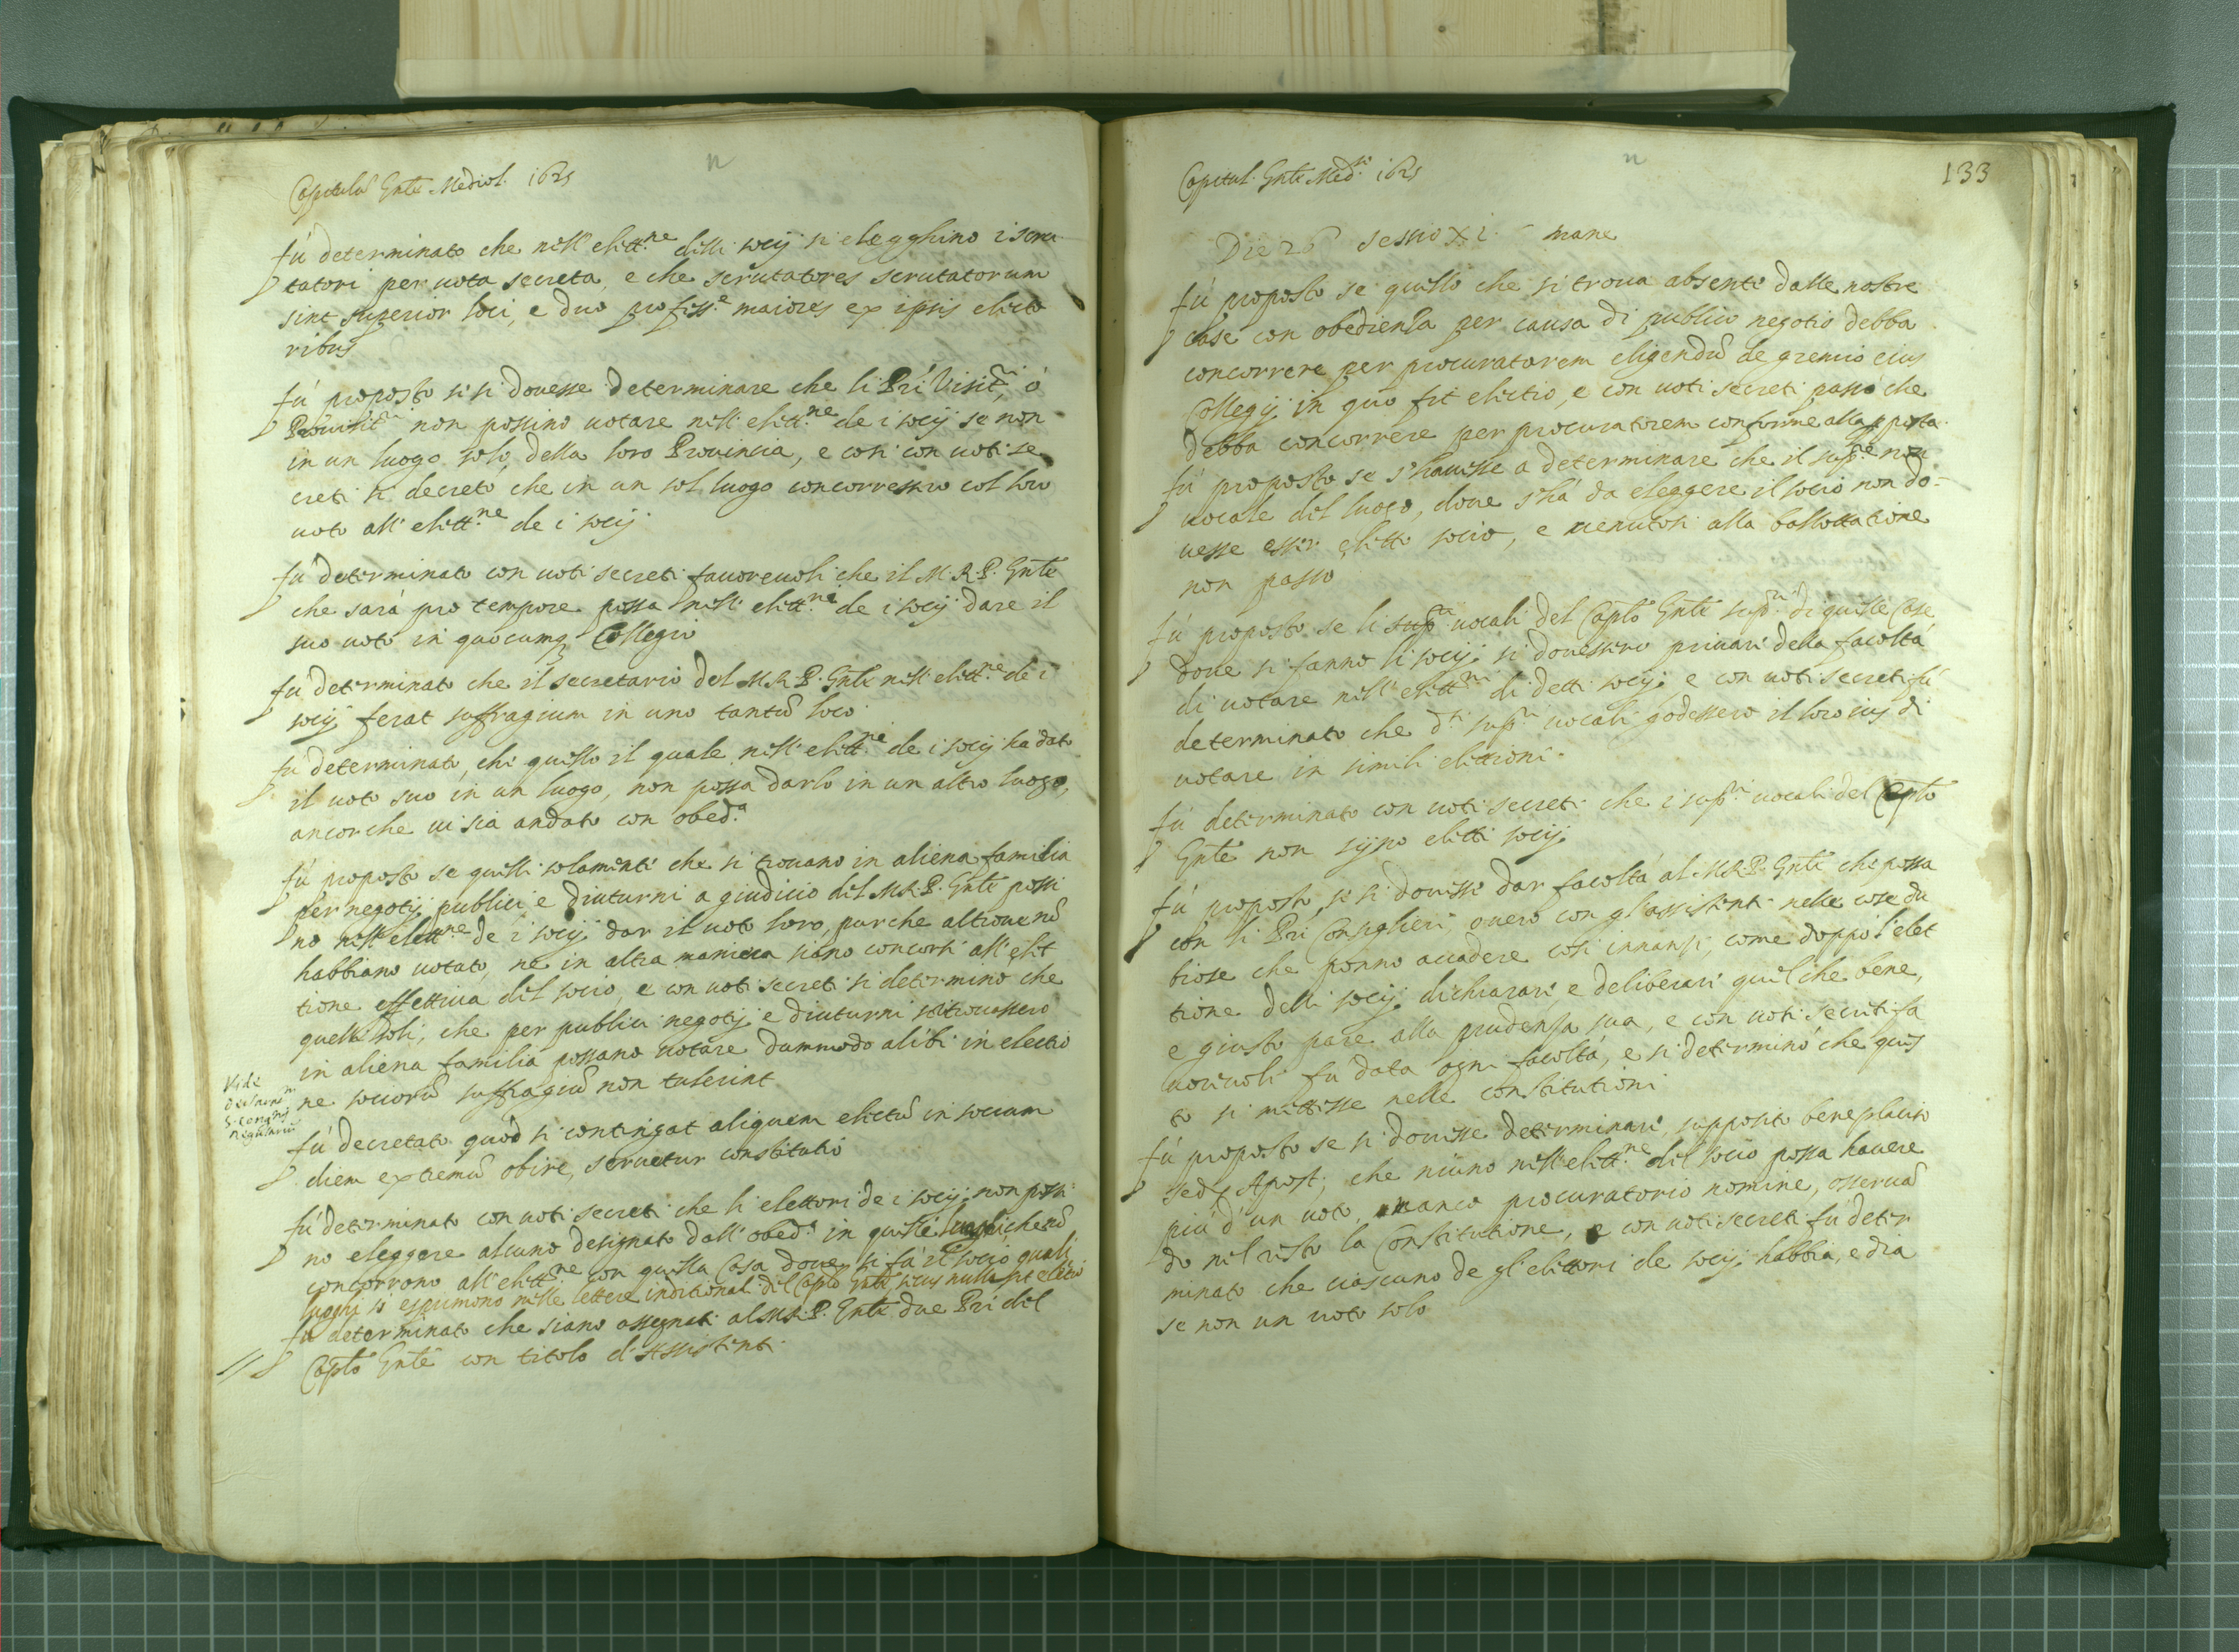 Capitulũ Gñle Mediol. 1625
fù determinato che nell'elett.ne delli socij si elegghino i scru
tatori per vota secreta, e che scrutatores scrutatorum
sint superior loci, e duo profess.e maiores ex ipsis electo
ribus
fù proposto se si douesse determinare che li Pri Visit.ri, ò
non possino uotare nell'elett.ne de i socij se non
in un luogo solo della loro Prouincia, e così con uoti se
creti si decretò che in un sol luogo concorressero col loro
uoto all'elett.ne de i socij
fù determinato con uoti secreti fauoreuoli che il M.R.P. Gñle
che sarà pro tempore possa nell'elett.ne de i socij dare il
suo uoto in quocumq; Collegio
fù determinato che il secretario del M.R.P. Gñle nell'elett.ne de i
socij ferat suffragium in uno tantũ loco
fù determinato, che quello il quale nell'elett.ne de i socij ha dato
il uoto suo in un luogo, non possa darlo in un altro luogo,
ancorche ui sia andato con obed.a
fù proposto se quelli solamente che si trouano in aliena familia
per negotij publici e diuturni a giudicio del M.R.P. Gñle possi
no nell'elett.ne de i socij dar il uoto loro, purche altroue nõ
habbiano uotato, ne in altra maniera siano concorsi all'elet
tione effettiua del socio, e con uoti secreti si determinò che
quelli soli, che per publici negotij e diuturni si trouassero
in aliena familia possano uotare dummodo alibi in electio
ne sociorũ suffragiũ non tulerint
Vide
fù decretato quòd si contingat aliquem electũ in socium
diem extremũ obire, seruetur constitutio
fù determinato con uoti secreti che li elettori de i socij non possi
no eleggere alcuno designato dall'obed.a in quelli luoghi che nõ
concorrono all'elett.ne con quella Casa doue si fà il socio quali
luoghi si esprimono nelle lettere indittionali del Cap̃lo Gñle, secus nulla sit electio
fù determinato che siano assegnati al M.R.P. Gñle due Pri del
Cap̃lo Gñle con titolo d'Assistenti
Capitul. Gñle Med. 1625
133
Die 26 sessio XI mane
fù proposto se quello che si troua absente dalle nostre
case con obedienza per causa di publico negotio debba
concorrere per procuratorem eligendũ de gremio eius
Collegij in quo fit electio, e con uoti secreti passò che
debba concorrere per procuratorem conforme alla pposta.
fù proposto se s'hauesse a determinare che il sup.re non
uocale del luogo, doue s'hà da eleggere il socio non do=
uesse esser eletto socio, e uenutosi alla ballottatione
non passò
fù proposto se li sup.ri uocali del Cap̃lo Gñle sup.ri di quelle Case
doue si fanno li socij si douessero priuari della facoltà
di uotare nell'elett.ni di detti socij e con uoti secreti fù
determinato che d.ti sup.ri uocali godessero il loro ius di
uotare in simili elettioni.
fù determinato con uoti secreti che i sup.ri uocali del Cap̃lo
Gñle non sijno eletti socij
fù proposto se si douesse dar facoltà al M.R.P. Gñle che possa
con li Pri Consiglieri, ouero con gl'assistenti nelle cose du
biose che ponno accadere così innanzi, come doppò l'elet
tione delli socij dichiarare, e deliberare quel che bene,
e giusto pare alla prudenza sua, e con uoti secreti fa
uoreuoli fù data ogni facoltà, e si determinò che ques
to si mettesse nelle constitutioni
fù proposto se si douesse determinare, supposito beneplacito
sedis Apost., che niuno nell'elett.ne del socio possa hauere
più d'un uoto manco procuratorio nomine, osseruã
do nel resto la constitutione, e con uoti secreti fù deter
minato che ciascuno de gl'elettori de socij habbia, e dia
se non un uoto solo